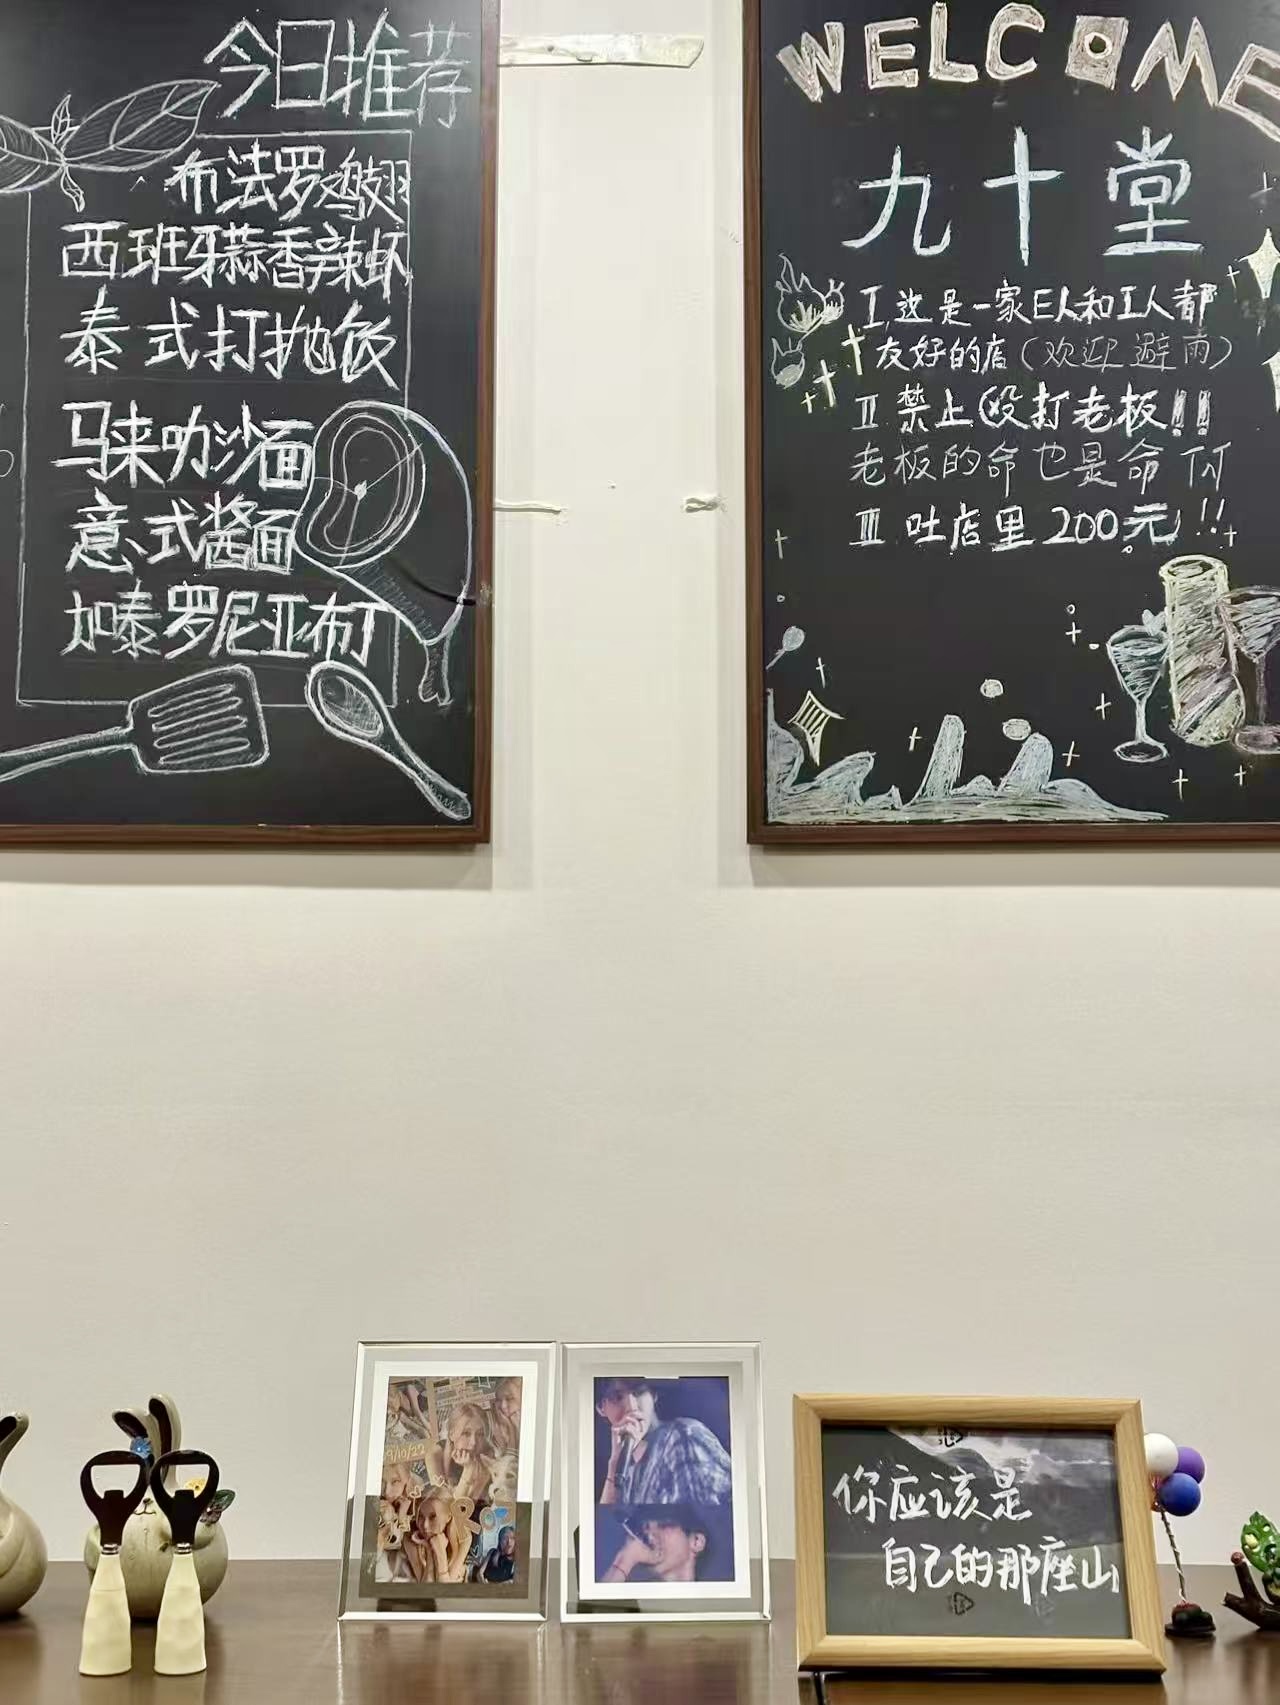 今日推荐
布法罗鸡翅
西班牙蒜香辣虾
泰式打抛饭
马来叻沙面
意式酱面
加泰罗尼亚布丁
WELCOME
九十堂
I.这是一家E人和I人都
友好的店(欢迎避雨)
II 禁止殴打老板!!
老板的命也是命
III 吐店里200元!!
9/10/22
你应该是
自己的那座山